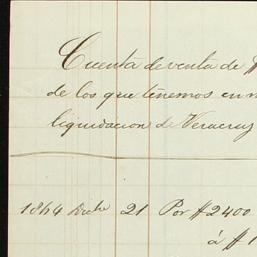 Cuenta de venta de $
de los que tenemos en n
liquidacion de Veracruz
1864 Dicbe 21 Por $2400
á $1